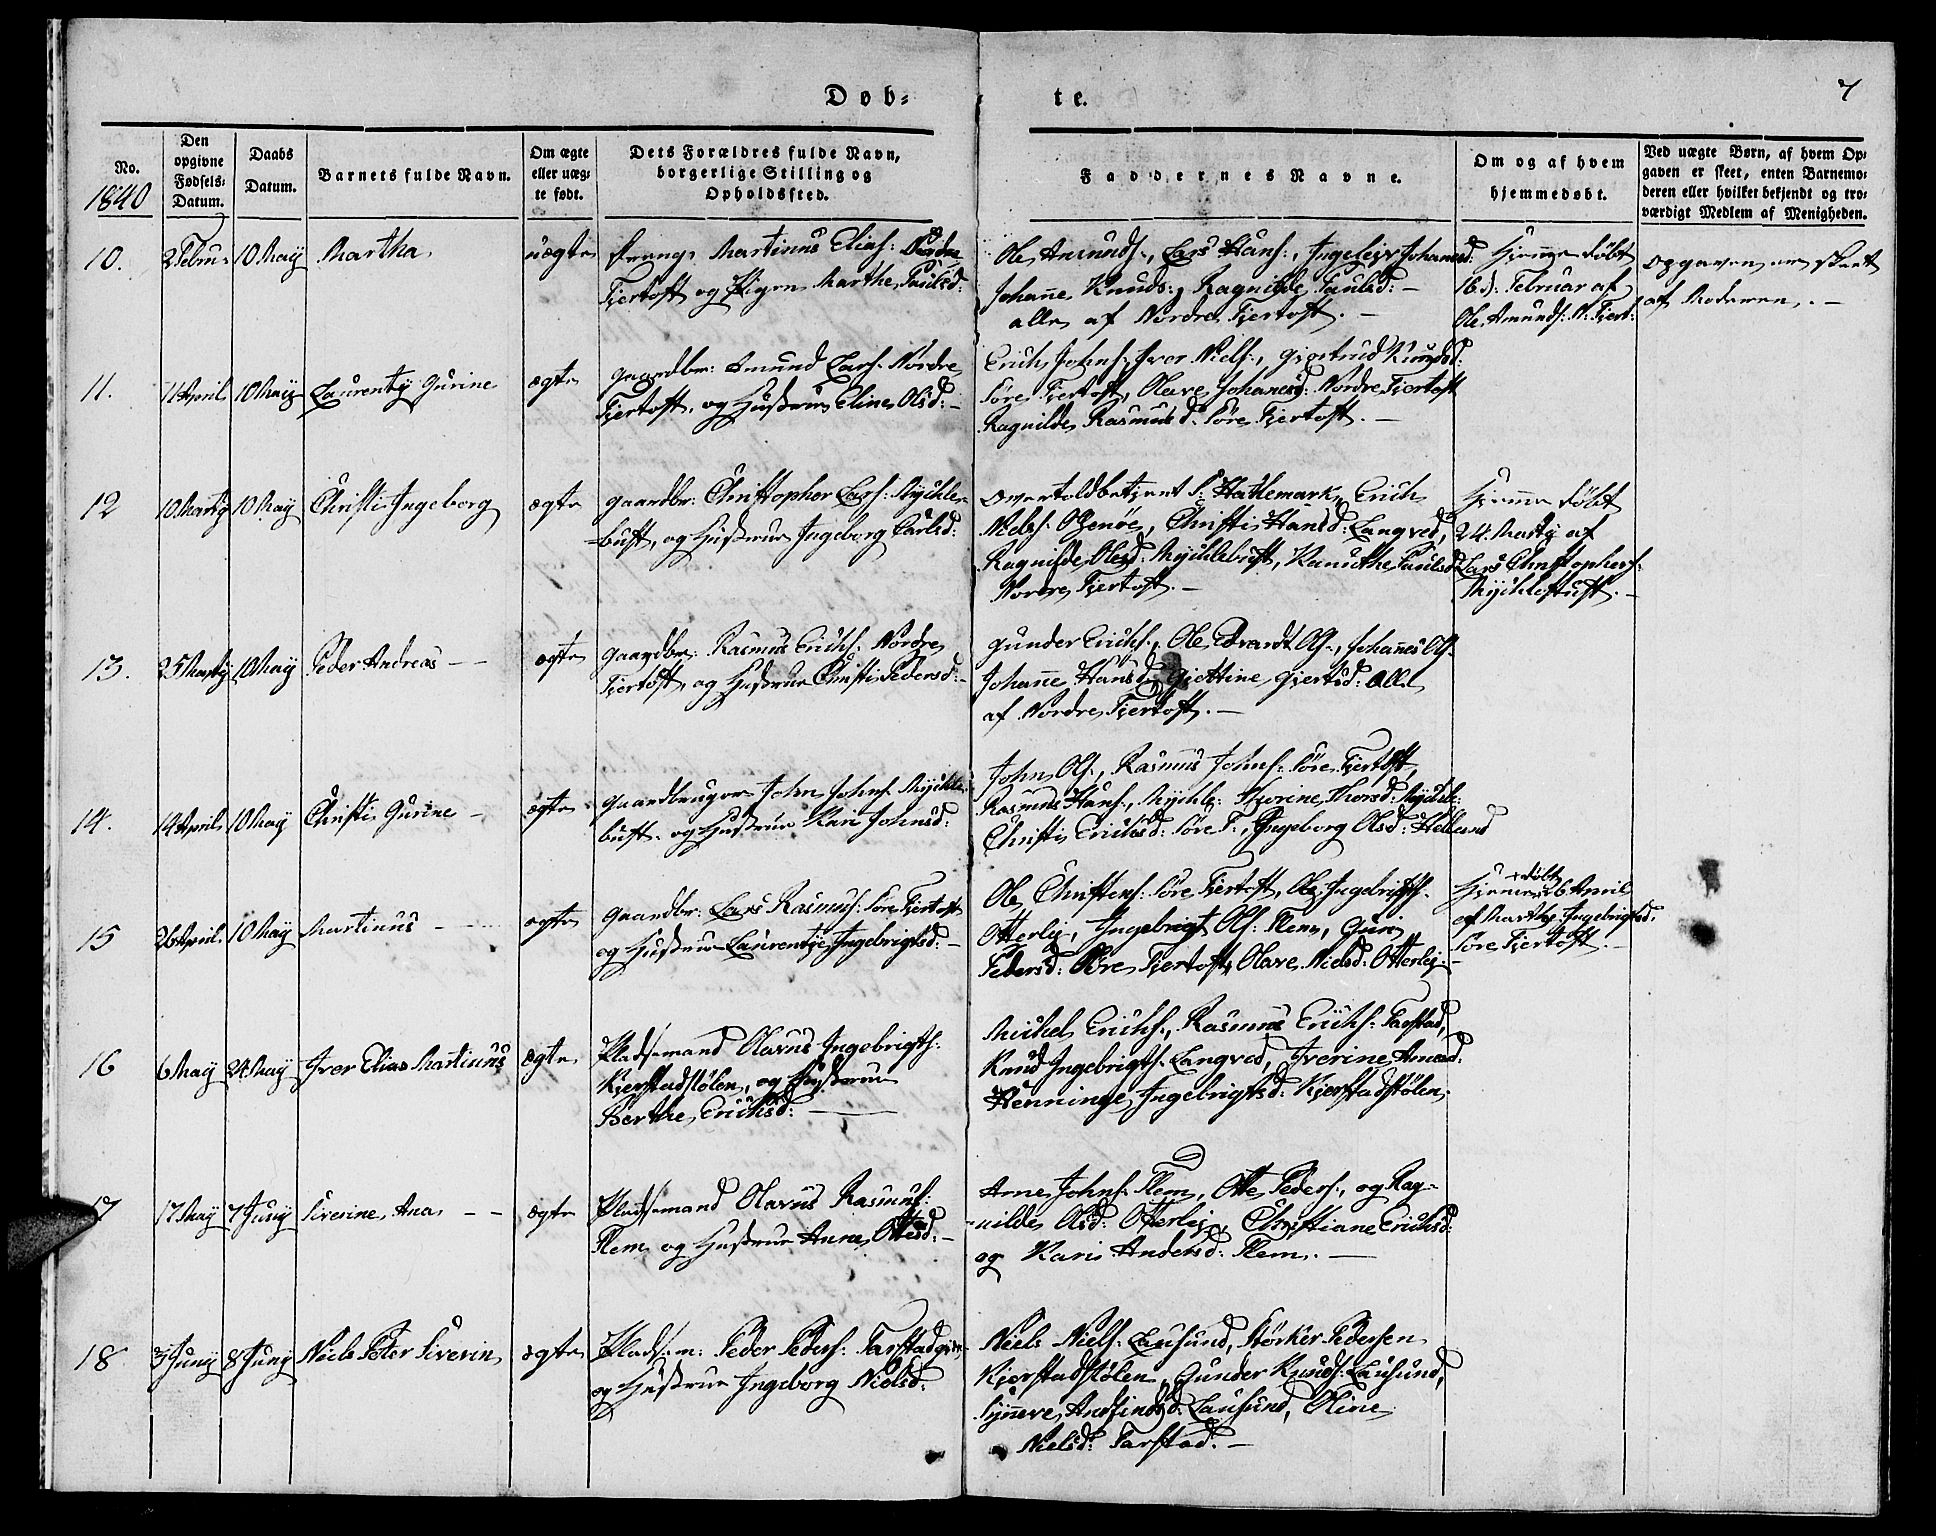 Døb-
te.
7
No.
1840
Den
opgivne
Fødsels-
Datum.
Daabs
Datum.
Barnets fulde Navn.
Om ægte
eller uæg-
te født.
Dets Forældres fulde Navn,
borgerlige Stilling og
Opholdssted.
Faddernes Navne.
Om og af hvem
hjemmedøbt.
Ved uægte Børn, af hvem Op-
gaven er skeet, enten Barnemo-
deren eller hvilket bekjendt og tro-
værdigt Medlem af Menigheden.
10.
2 Febru:
10 May
Martha
uægte
Dreng Martinus Elias: Nordre
Fjertoft og Pigen Marthe Paulsd:
Ole Amunds:, Lars Hans:, Ingeleiv Johannesd:
Johanne Knuds:, Ragnilde Paulsd: –
alle af Nordre Fjertoft. –
Hjemme døbt
16 d. Februar af
Ole Amunds: N: Fjert:
Opgaven er skeet
af Moderen. –
11.
11 April
10 May
Laurenty Gurine
ægte
Gaardbr: Amund Lars: Nordre
Fjertoft, og Hustrue Eline Olsd: –
Erich Johns:, Iver Niels:, Gjertrud Knudsd:
Søre Fjertoft, Olave Johanesd: Nordre Fjertoft
Ragnilde Rasmusd: Søre Fjertoft. –
12
10 Marty
10 May
Christi Ingeborg
ægte
Gaardbr: Christopher Lars: Myckle-
-bust, og Hustrue Ingeborg Carlsd:
Overtoldbetjent S: Hathemark, Erich
Niels: Ogenøe, Christi Hansd: Langved,
Ragnilde Olsd: Mycklebust, Kanuthe Paulsd:
Nordre Fjertoft. –
Hjemme døbt
24: Marty af
Lars Christophers:
Mycklebust. –
13.
25 Marty
10 May
Peder Andreas – –
ægte
Gaardbr: Rasmus Erichs: Nordre
Fjertoft, og Hustrue Christi Pedersd: –
Gunder Erichs:, Ole Edvardt Ols:, Johannes Ols:
Johanne Hansd: Gjettine Gjertsd: alle
af Nordre Fjertoft. –
14.
14 April
10 May
Christi Gurine –
ægte
Gaardbruger John Johns: Myckle-
bust. og Hustrue Kari Johnsd:
John Ols:, Rasmus Johns: Søre Fjertoft,
Rasmus Hans:, Myckle: Thorsd: Myckle:
Christi Erichsd: Søre F:, Ingeborg Olsd: Helland
15
26 April
10 May
Martinus –
ægte
Gaardbr: Lars Rasmus: Søre Fjertoft
og Hustrue Laurentze Ingebrigtsd: –
Ole Christens: Søre Fjertoft, Ole Ingebrigts:
Otterlej, Ingebrigt Ols: Flem, Guri
Pedersd: Søre Fjertoft, Olave Nielsd: Otterlej: –
Hjemme døbt 26 April
af Marthe Ingebrigtsd:
Søre Fjertoft. –
16
6 May
24 May
Iver Elias Martinus
ægte
Pladsemand Olavus Ingebrigts:
Kjerstadstølen, og Hustrue
Berthe Erichsd: –
Michel Erichs:, Rasmus Erichs: Farstad,
Knud Ingebrigts: Langved, Iverine Amusd:
Henninge Ingebrigtsd: Kjerstadstølen
17
17 May
7 Juny
Siverine Ana – –
ægte
Pladsemand Olavus Rasmus:
Flem og Hustrue Anne Ottesd: –
Arne Johns: Flem, Otte Peders:, og Rag-
-nilde Olsd: Otterlej, Christiane Erichsd:
og Kari Andersd: Flem. –
18
3 Juny
8 Juny
Niels Peter Siverin
ægte
Pladsem: Peder Peders: Farstad
og Hustrue Ingeborg Nielsd:
Niels Niels: Lausund, Størker Pedersen
Kjerstadstølen, Gunder Knuds: Lausund,
Synneve Lausund, Oline
Nielsd: Farstad. –